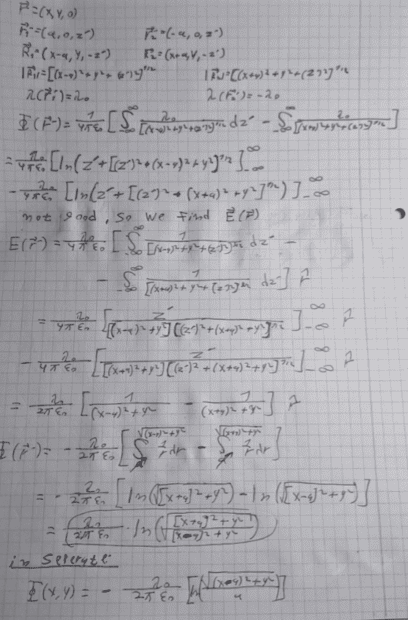 r⃗ = (x, y, 0)
r⃗₁' = (a, 0, z') r⃗₂' = (-a, 0, z')
R⃗₁ = (x-a, y, -z') R⃗₂ = (x+a, y, -z')
|R⃗₁| = [(x-a)² + y² + (z')²]^1/2 |R⃗₂| = [(x+a)² + y² + (z')²]^1/2
λ(r⃗₁') = λ₀ λ(r⃗₂') = -λ₀
Φ(r⃗) = 1/4πε₀ [∫_-∞^∞ λ₀/[(x-a)² + y² + (z')²]^1/2 dz' - ∫_-∞^∞ λ₀/[(x+a)² + y² + (z')²]^1/2]
= λ₀/4πε₀ [ln(z' + [(z')² + (x-a)² + y²]^1/2]_-∞^∞
- λ₀/4πε₀ [ln(z' + [(z')² + (x+a)² + y²]^1/2)]_-∞^∞
not good, so we find E⃗(r⃗)
E(r⃗) = λ₀/4πε₀ [∫_-∞^∞ 1/[(x-a)² + y² + (z')²]^3/2 dz' -
- ∫_-∞^∞ 1/[(x+a)² + y² + (z')²]^3/2 dz'] r̂
= λ₀/4πε₀ [z'/[(x-a)² + y²][(z')² + (x-a)² + y²]^1/2]_-∞^∞ r̂
- λ₀/4πε₀ [z'/[(x+a)² + y²][(z')² + (x+a)² + y²]^1/2]_-∞^∞ r̂
= λ₀/2πε₀ [1/(x-a)² + y² - 1/(x+a)² + y²] r̂
Φ(r⃗) = - λ₀/2πε₀ [∫^√(x-a)²+y² 1/r dr - ∫^√(x+a)²+y² 1/r dr]
= - λ₀/2πε₀ [ln(√[x+a]² + y²) - ln(√[x-a]² + y²)]
= λ₀/2πε₀ · ln(√[x+a]² + y²/[x-a]² + y²)
in seperate:
Φ(x, y) = - λ₀/2πε₀ [ln(√(x-a)² + y²/a)]